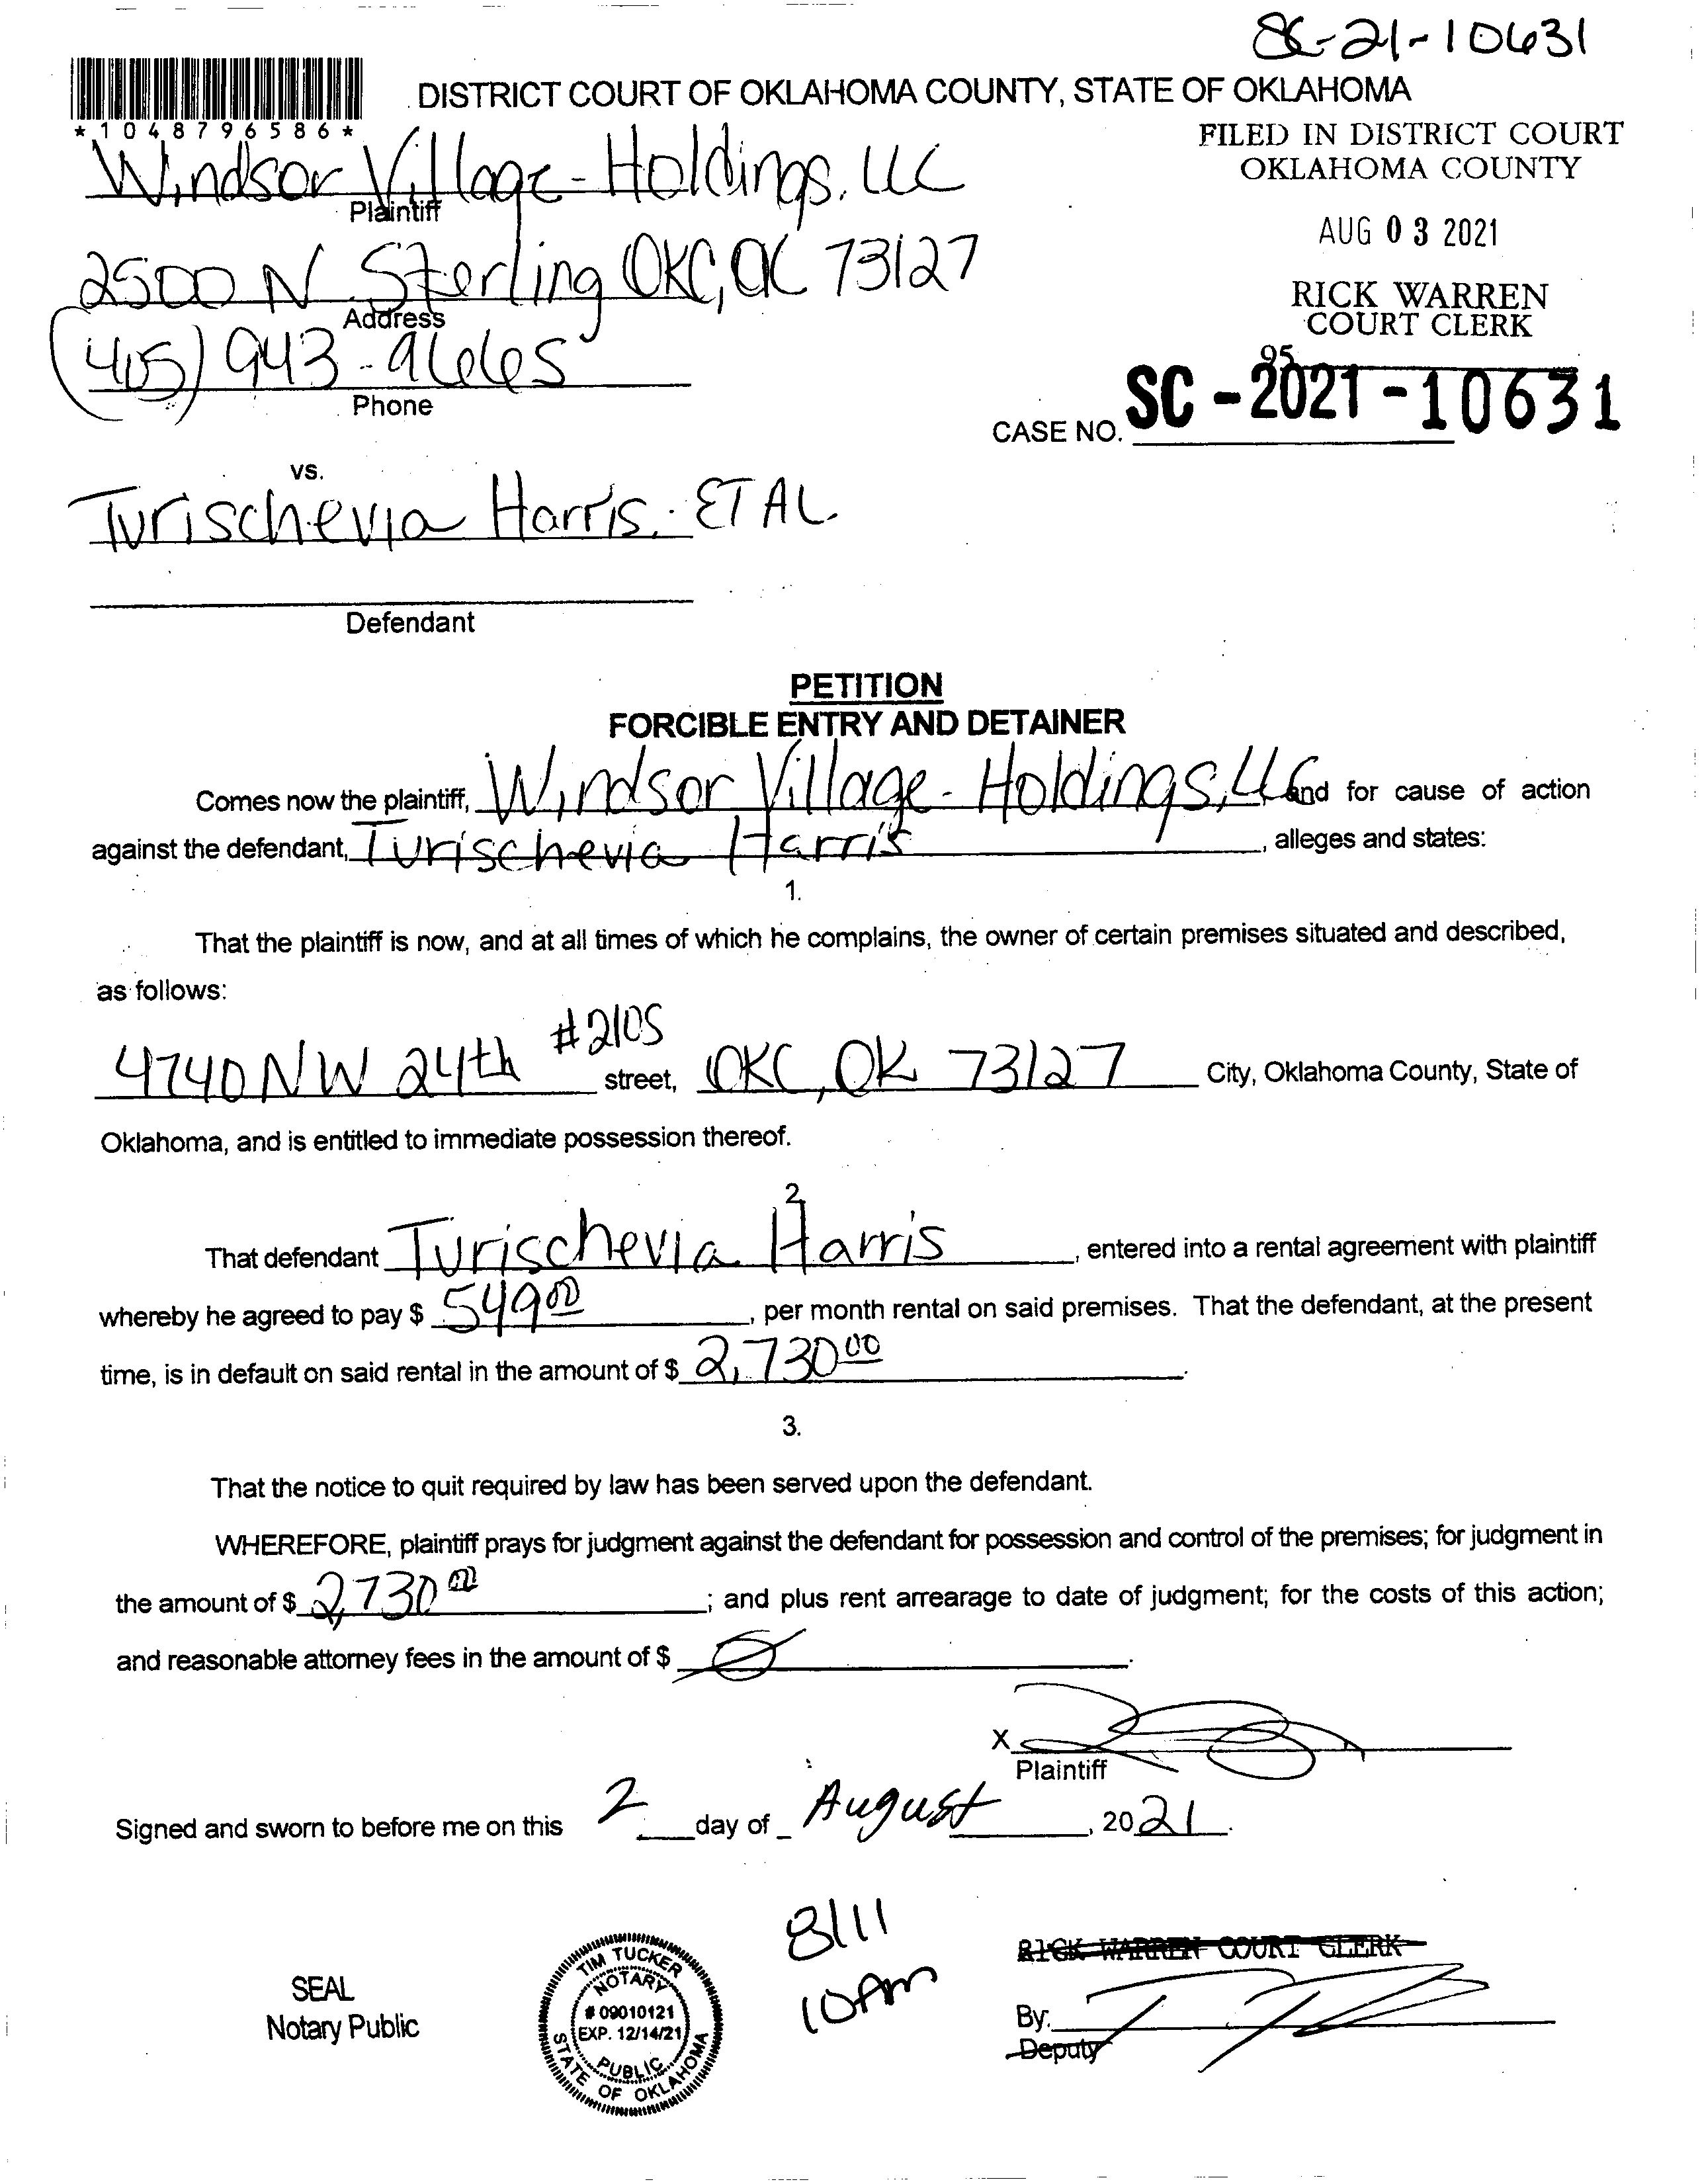 SC-21-10631
*1048796586*
DISTRICT COURT OF OKLAHOMA COUNTY, STATE OF OKLAHOMA
FILED IN DISTRICT COURT
OKLAHOMA COUNTY
Windsor Village-Holdings, LLC
Plaintiff
AUG 03 2021
2500 N Sterling OKC, OK 73127
Address
RICK WARREN
COURT CLERK
(405) 943-9665
Phone
95
CASE NO. SC-2021-10631
vs.
Turischevia Harris, ET AL.
Defendant
PETITION
FORCIBLE ENTRY AND DETAINER
Comes now the plaintiff, Windsor Village-Holdings, LLC and for cause of action
against the defendant, Turischevia Harris, alleges and states:
1.
That the plaintiff is now, and at all times of which he complains, the owner of certain premises situated and described,
as follows:
4740 NW 24th #210S street, OKC, OK 73127 City, Oklahoma County, State of
Oklahoma, and is entitled to immediate possession thereof.
2.
That defendant Turischevia Harris, entered into a rental agreement with plaintiff
whereby he agreed to pay $ 549.00, per month rental on said premises. That the defendant, at the present
time, is in default on said rental in the amount of $ 2,730.00.
3.
That the notice to quit required by law has been served upon the defendant.
WHEREFORE, plaintiff prays for judgment against the defendant for possession and control of the premises; for judgment in
the amount of $ 2,730.00; and plus rent arrearage to date of judgment; for the costs of this action;
and reasonable attorney fees in the amount of $ Ø.
X
Plaintiff
Signed and sworn to before me on this 2 day of August, 2021.
8/11
10 Am
RICK WARREN COURT CLERK
SEAL
Notary Public
TIM TUCKER
NOTARY
# 09010121
EXP. 12/14/21
PUBLIC
STATE OF OKLAHOMA
By:
Deputy